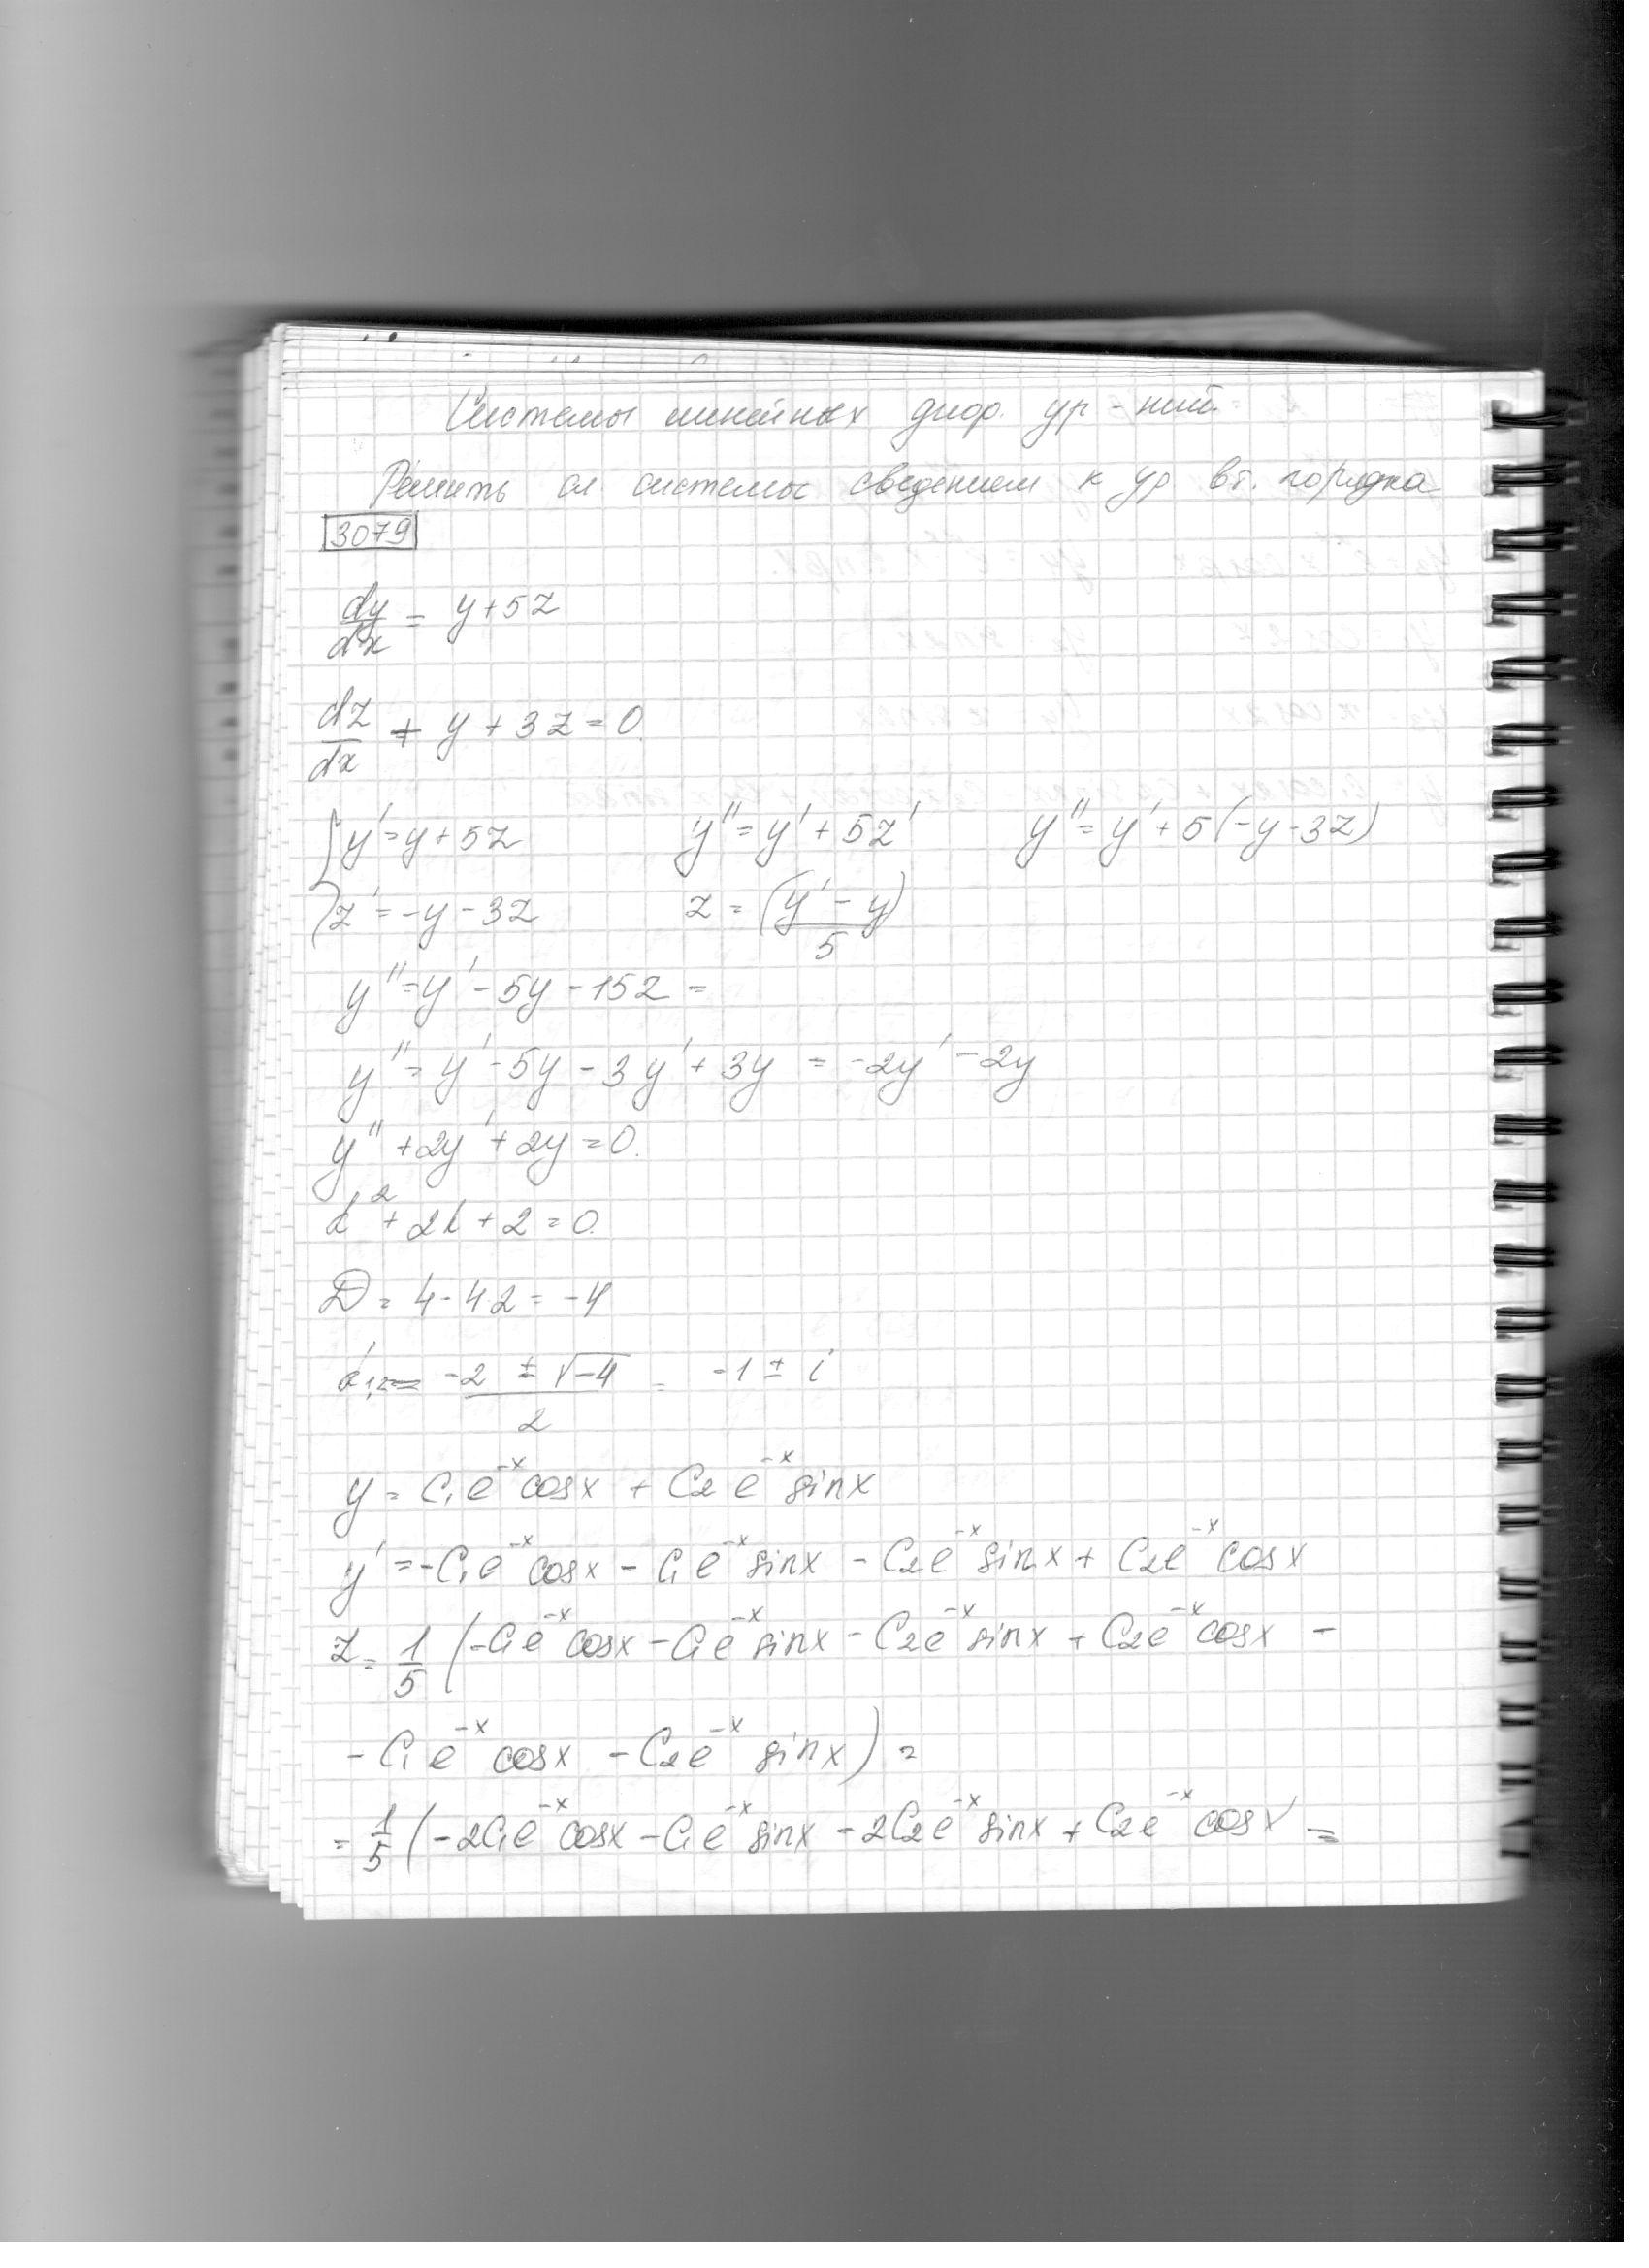 Системы линейных диф. ур-ний.
Решить сл системы сведением к ур вт. порядка
3079
dy/dx = y+5z
dz/dx + y + 3z = 0.
{ y' = y+5z   y'' = y' + 5z'   y'' = y' + 5(-y-3z)
z' = -y-3z   z = (y' - y)/5
y'' = y' - 5y - 15z =
y'' = y' - 5y - 3y' + 3y = -2y' - 2y
y'' + 2y' + 2y = 0.
k² + 2k + 2 = 0.
D = 4 - 4·2 = -4
k₁,₂ = (-2 ± √-4)/2 = -1 ± i
y = C₁e⁻ˣcosx + C₂e⁻ˣsinx
y' = -C₁e⁻ˣcosx - C₁e⁻ˣsinx - C₂e⁻ˣsinx + C₂e⁻ˣcosx
z = 1/5 (-C₁e⁻ˣcosx - C₁e⁻ˣsinx - C₂e⁻ˣsinx + C₂e⁻ˣcosx -
- C₁e⁻ˣcosx - C₂e⁻ˣsinx) =
= 1/5 (-2C₁e⁻ˣcosx - C₁e⁻ˣsinx - 2C₂e⁻ˣsinx + C₂e⁻ˣcosx) =